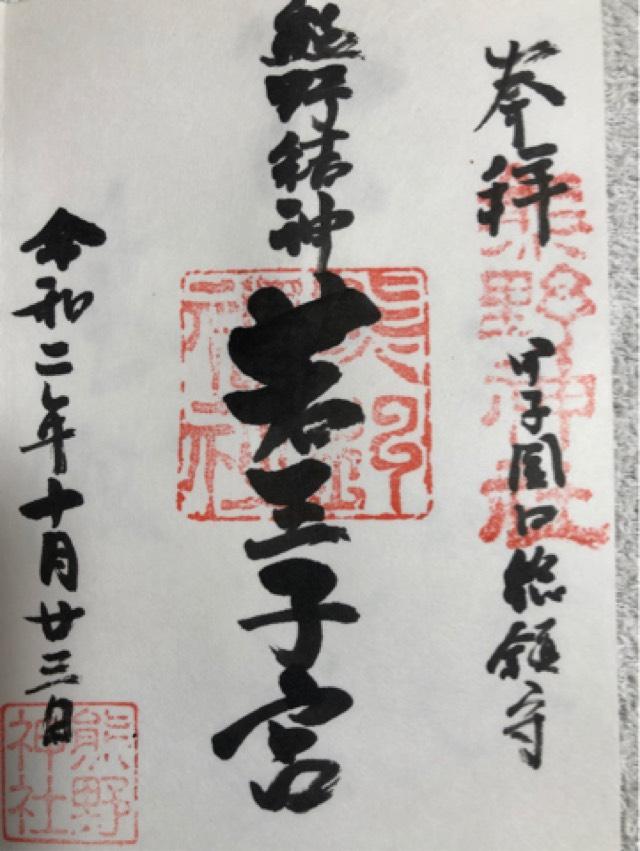 奉拝
熊野神社
甲子園口総鎮守
熊野結神
若王子宮
熊野神社
令和二年十月廿三日
熊野神社